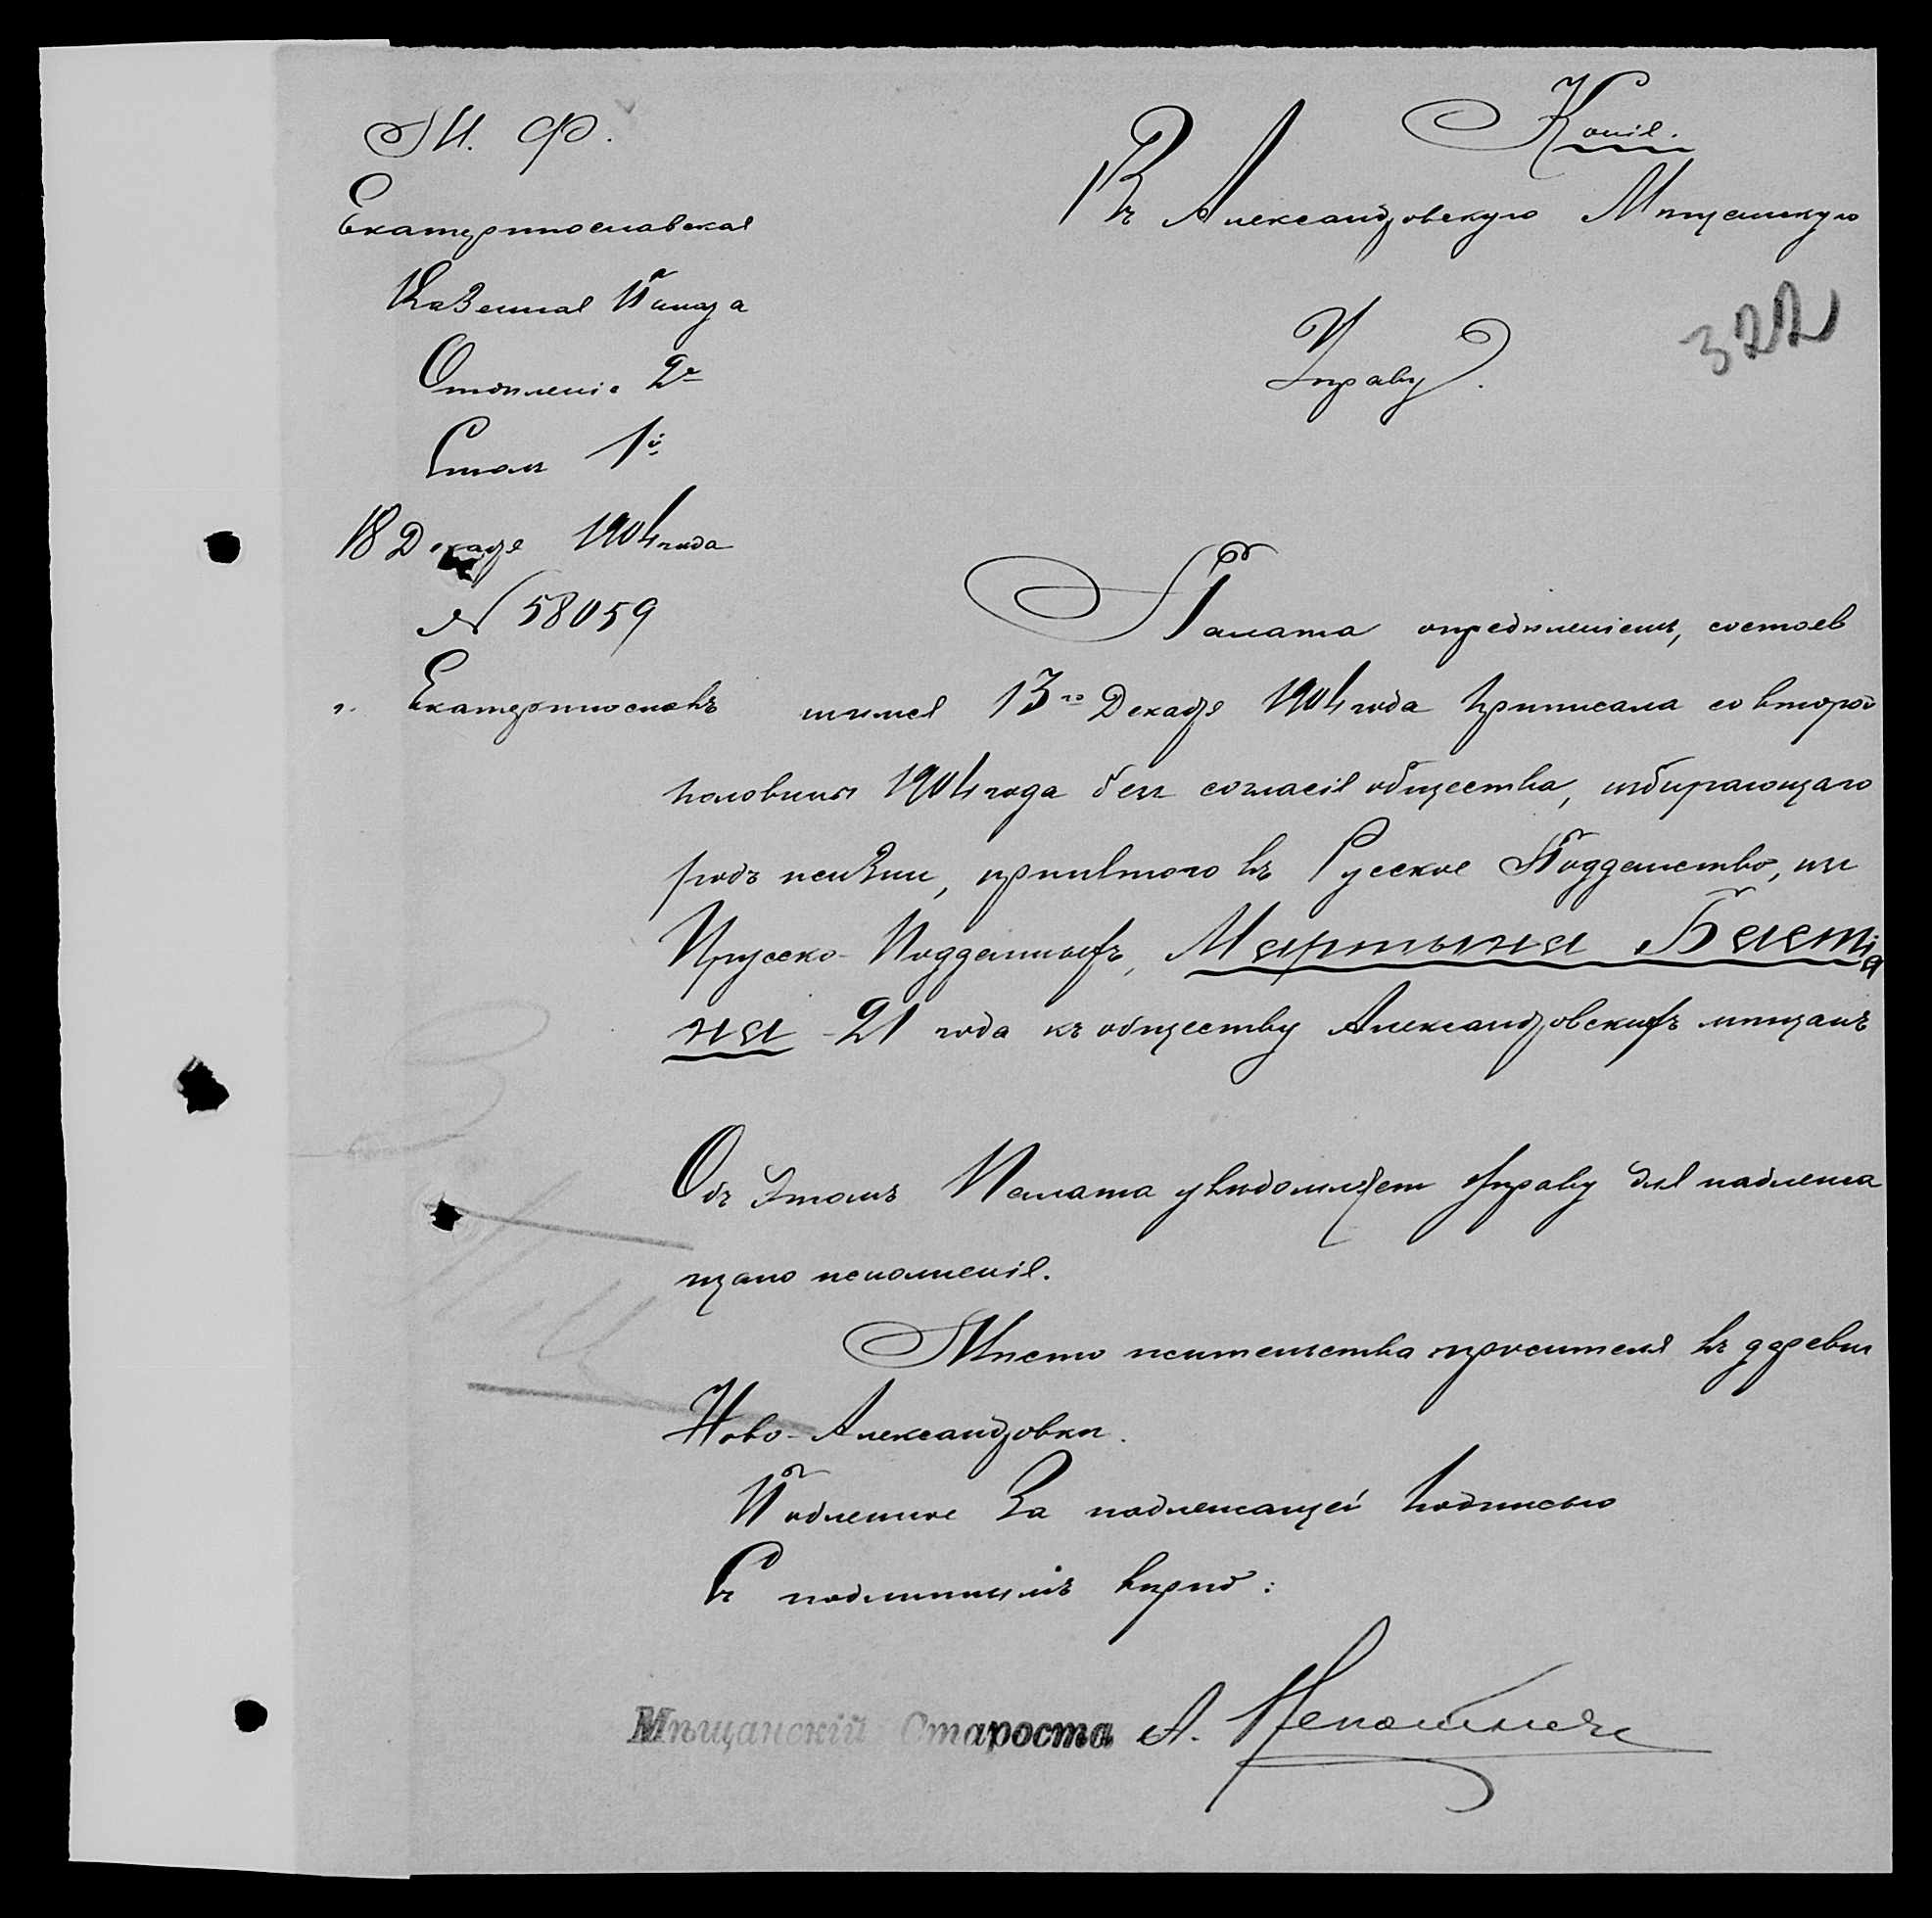 Копія.
М. Ф.
Екатеринославская
Казенная Палата
Отдѣленіе 2е
Столъ 1й
18 Декабря 1904 года
N 58059
г. Екатеринославъ
Въ Александровскую Мѣщанскую
Управу.
322
Палата опредѣленіемъ, состояв
шимся 13го Декабря 1904 года приписала со второй
половины 1904 года безъ согласія общества, избирающаго
родъ жизни, принятаго въ Русское Подданство, изъ
Прусско-Подданныхъ, Мартына Бастiа
на 21 года къ обществу Александровскихъ мѣщанъ
Объ этомъ Палата увѣдомляетъ Управу для надлежа
щаго исполненія.
Мѣсто жительства просителя въ деревнѣ
Ново-Александровкѣ.
Подленное За надлежащей подписью
Съ подлиннымъ вѣрно:
Мѣщанскій Староста А.